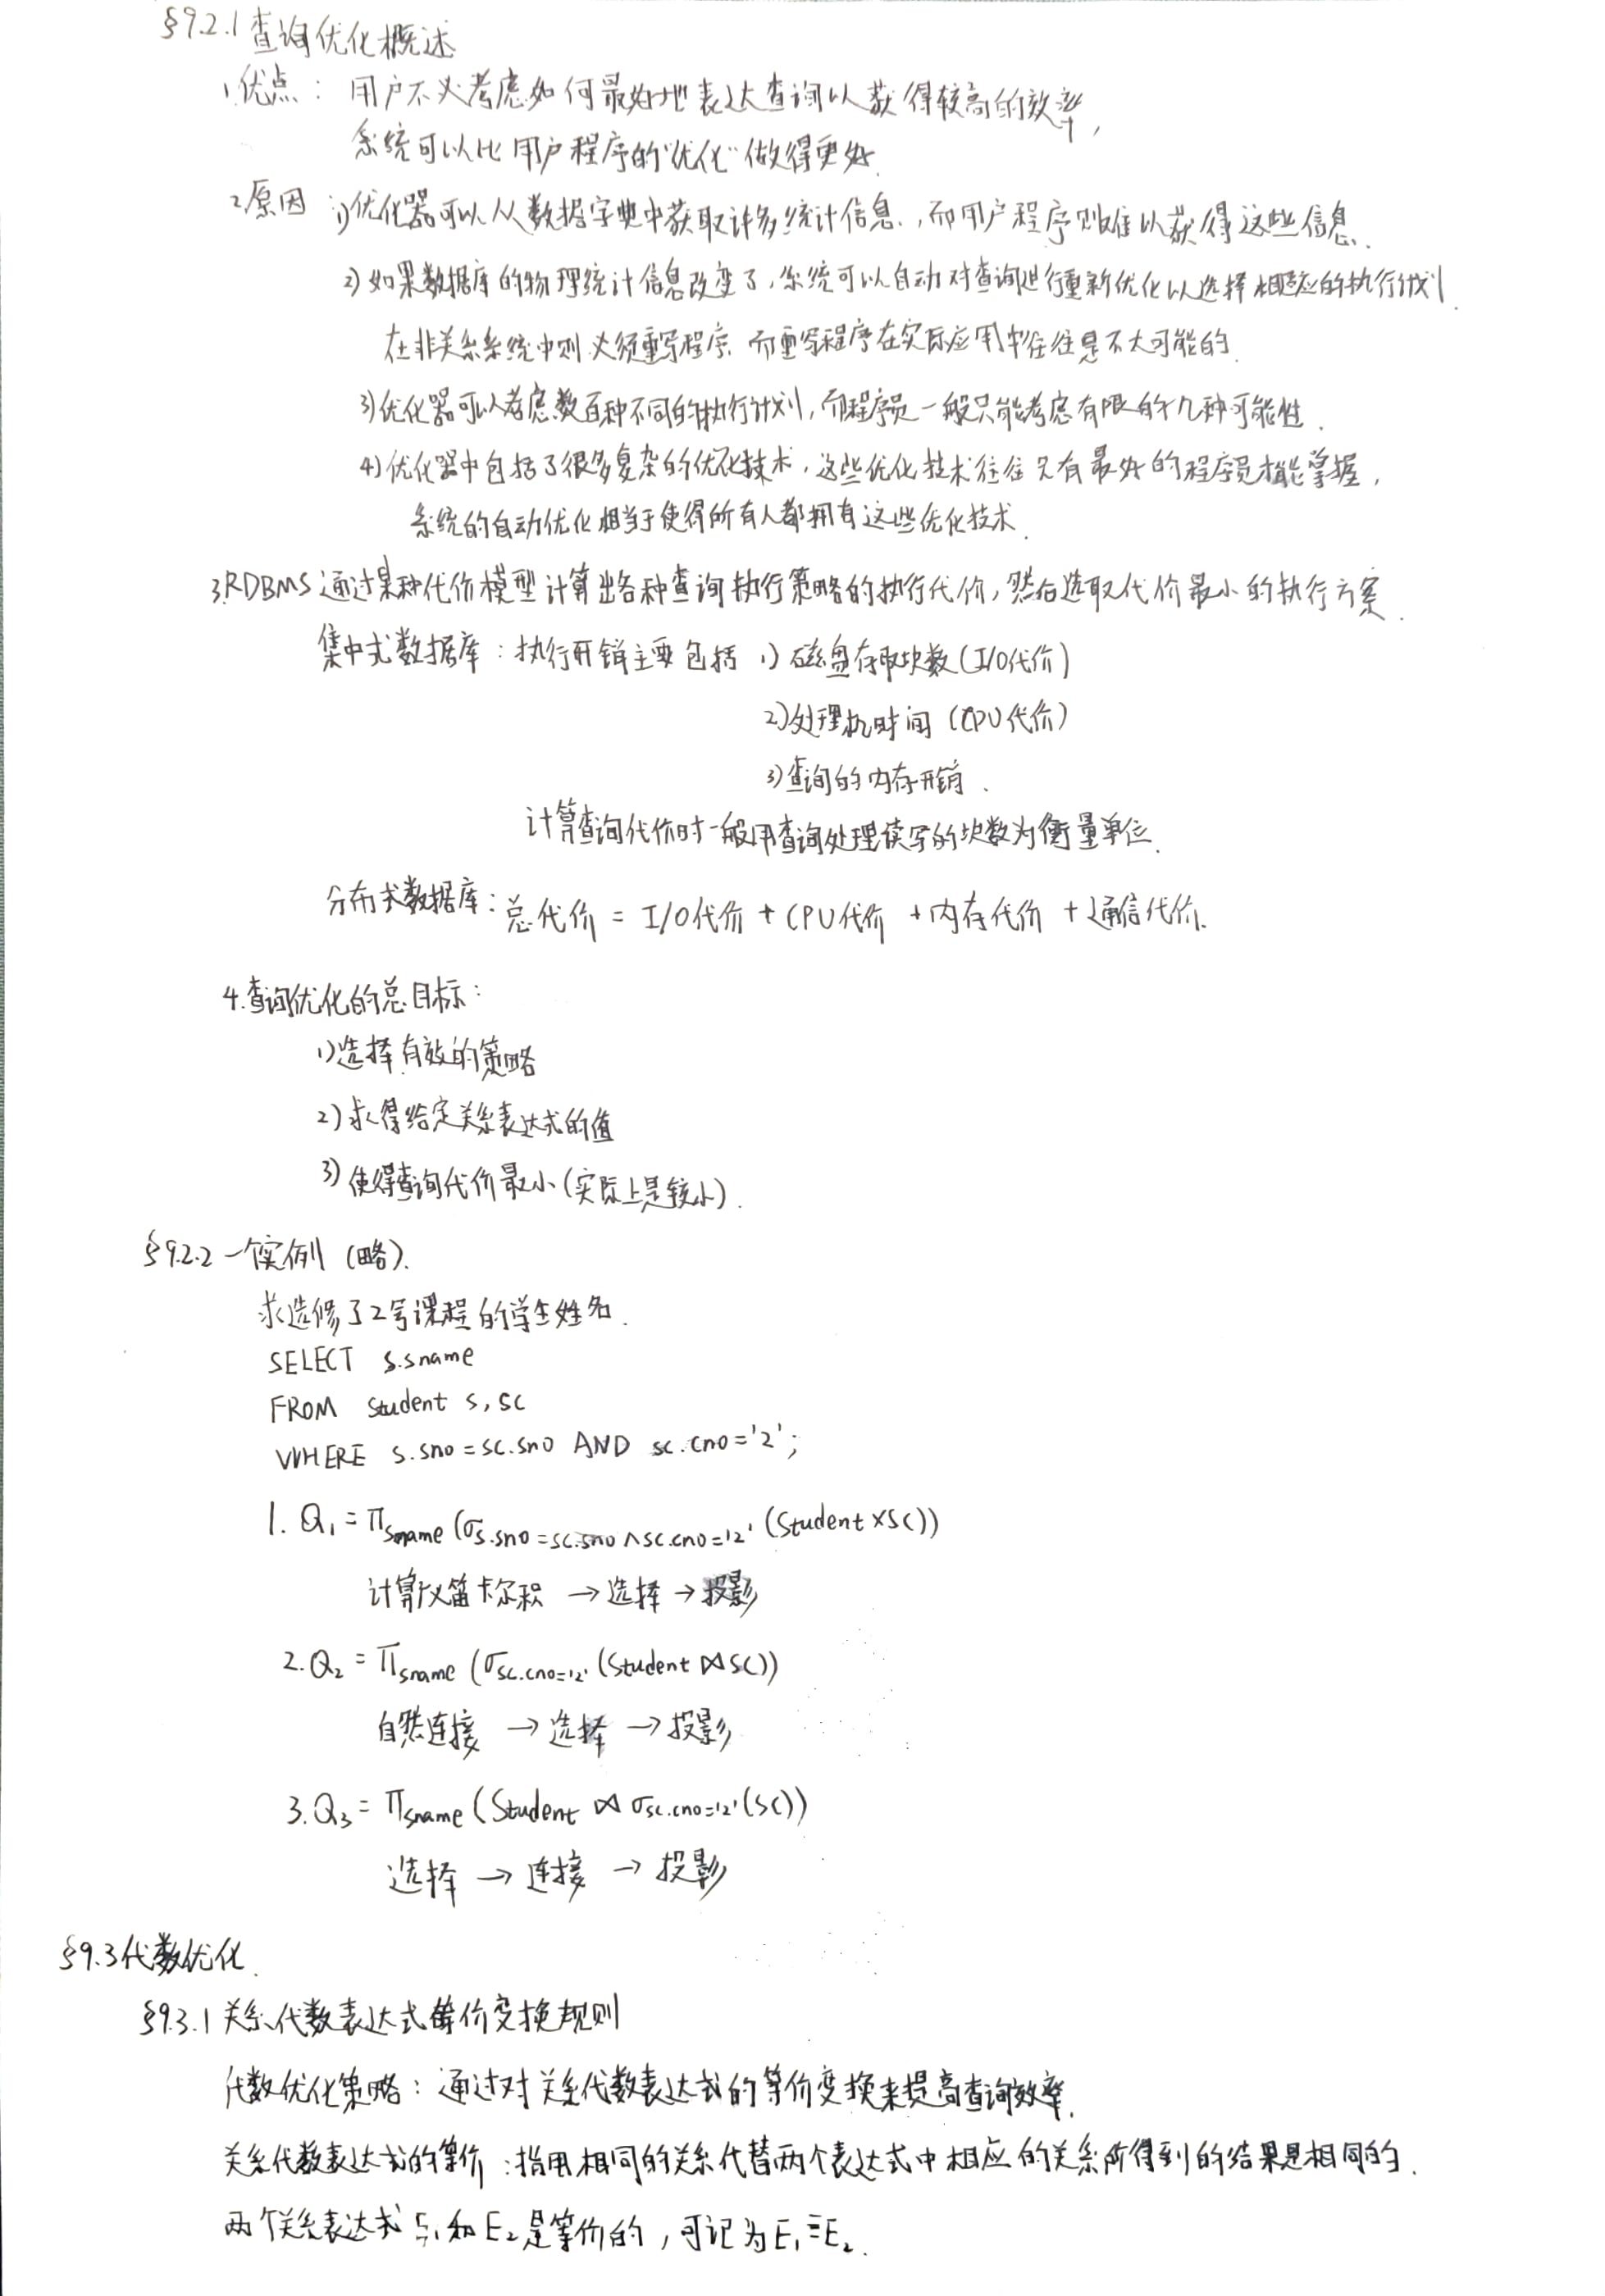 §9.2.1 查询优化概述
1.优点：用户不必考虑如何最好地表达查询以获得较高的效率，
系统可以比用户程序的“优化”做得更好.
2.原因：1)优化器可以从数据字典中获取许多统计信息，而用户程序则难以获得这些信息.
2)如果数据库的物理统计信息改变了，系统可以自动对查询进行重新优化以选择相适应的执行计划.
在非关系系统中则必须重写程序，而重写程序在实际应用中往往是不大可能的.
3)优化器可以考虑数百种不同的执行计划，而程序员一般只能考虑有限的几种可能性.
4)优化器中包括了很多复杂的优化技术，这些优化技术往往只有最好的程序员才能掌握，
系统的自动优化相当于使得所有人都拥有这些优化技术.
3.RDBMS通过某种代价模型计算出各种查询执行策略的执行代价，然后选取代价最小的执行方案.
集中式数据库：执行开销主要包括 1)磁盘存取块数(I/O代价)
2)处理机时间(CPU代价)
3)查询的内存开销.
计算查询代价时一般用查询处理读写的块数为衡量单位.
分布式数据库：总代价 = I/O代价 + CPU代价 + 内存代价 + 通信代价.
4.查询优化的总目标：
1)选择有效的策略
2)求得给定关系表达式的值
3)使得查询代价最小(实际上是较小).
§9.2.2 一个实例 (略).
求选修了2号课程的学生姓名.
SELECT s.sname
FROM student s, sc
WHERE s.sno = sc.sno AND sc.cno = '2';
1. Q₁ = πsname (σs.sno = sc.sno ∧ sc.cno = '2' (Student × SC))
计算广义笛卡尔积 → 选择 → 投影
2. Q₂ = πsname (σsc.cno='2' (Student ⋈ SC))
自然连接 → 选择 → 投影
3. Q₃ = πsname (Student ⋈ σsc.cno='2' (SC))
选择 → 连接 → 投影
§9.3 代数优化.
§9.3.1 关系代数表达式等价变换规则
代数优化策略：通过对关系代数表达式的等价变换来提高查询效率.
关系代数表达式的等价：指用相同的关系代替两个表达式中相应的关系所得到的结果是相同的.
两个关系表达式E₁和E₂是等价的，可记为E₁≡E₂.